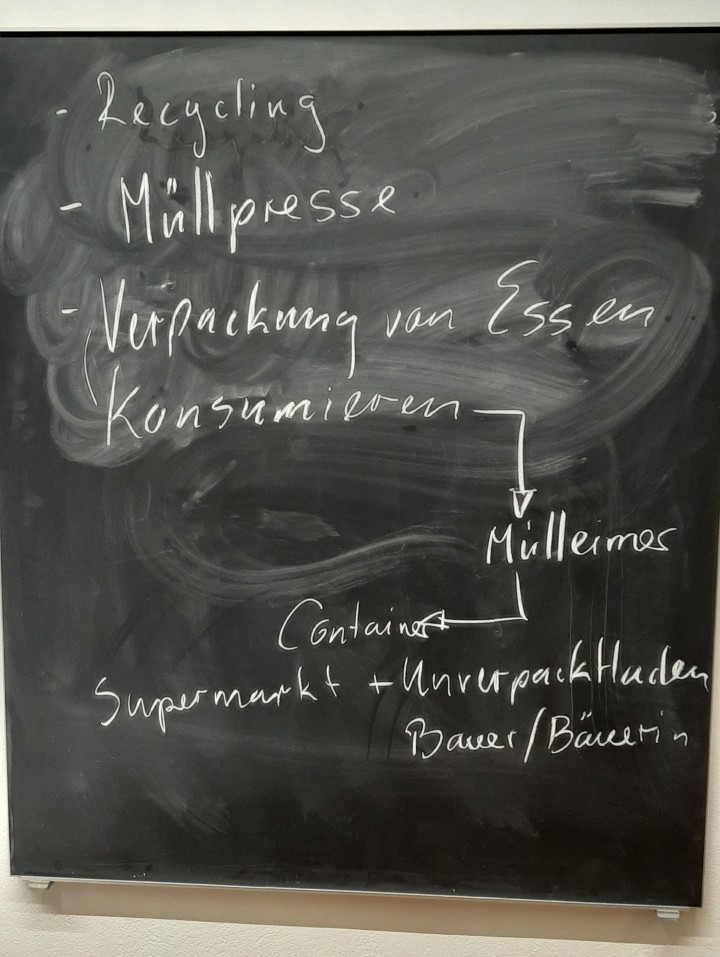 - Recycling
- Müllpresse
- Verpackung von Essen
Konsumieren
Mülleimer
Container
Supermarkt + Unverpacktladen
Bauer/Bäuerin